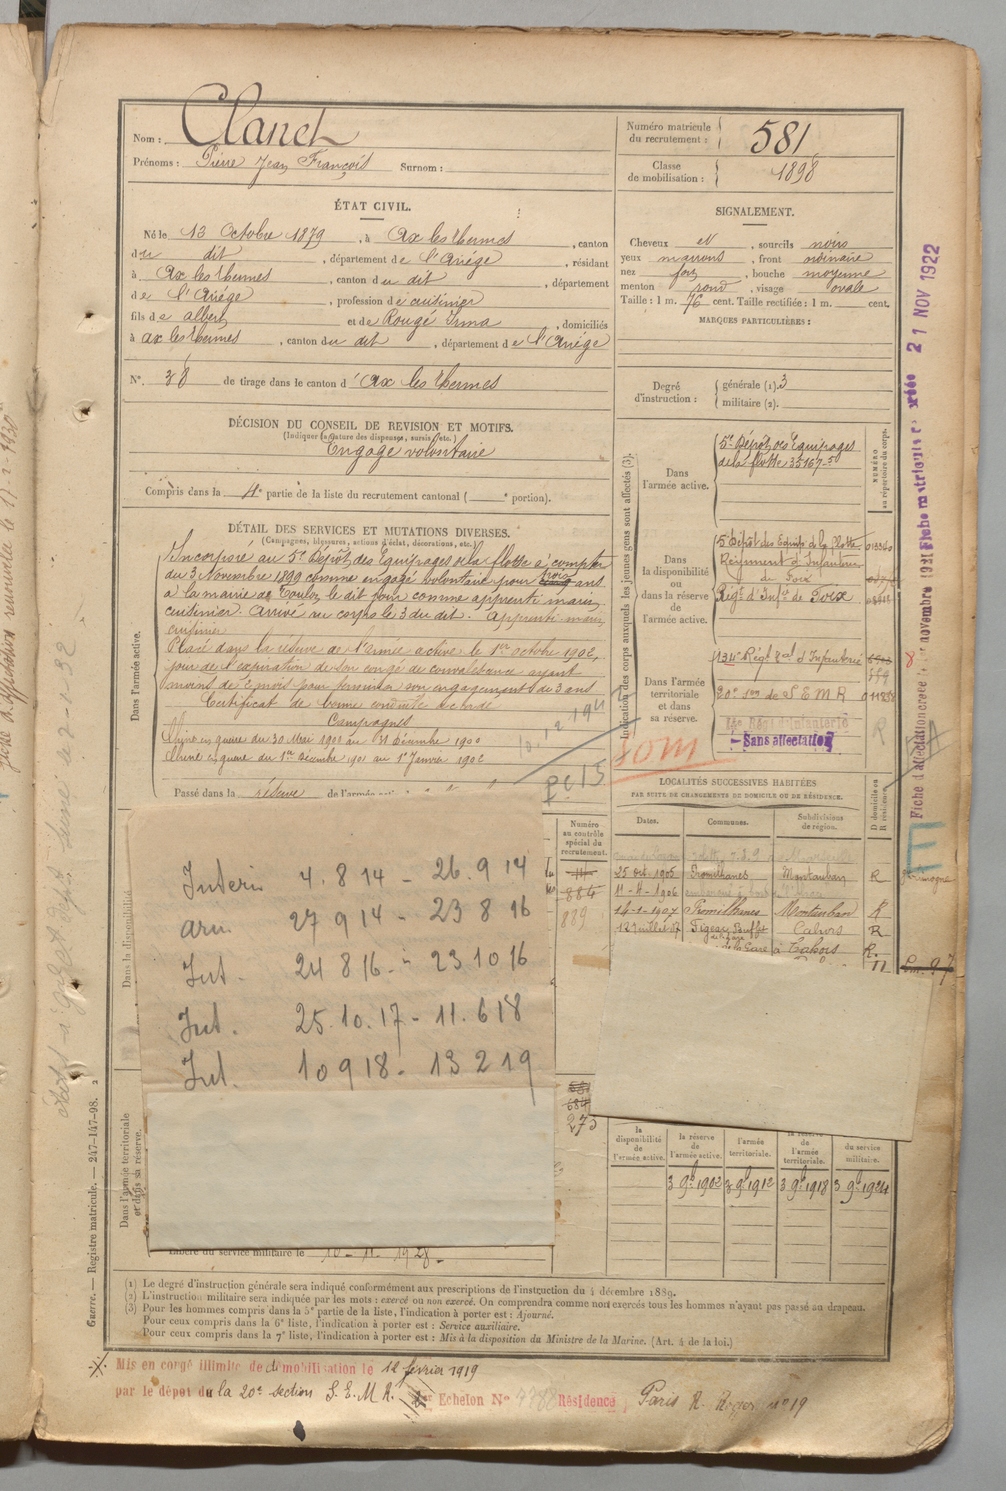 Nom : Clanet
Prénoms : Pierre Jean François Surnom :
Numéro matricule du recrutement : 581
Classe de mobilisation : 1898
ÉTAT CIVIL.
Né le 13 Octobre 1879, à Ax les Thermes, canton
du dit, département de l'Ariège, résidant
à Ax les Thermes, canton du dit, département
de l'Ariège, profession de cuisinier
fils de albert et de Rougé Irma, domiciliés
à ax les Thermes, canton du dit, département de l'Ariège
N° 38 de tirage dans le canton d'Ax les Thermes
SIGNALEMENT.
Cheveux et, sourcils noirs
yeux marrons, front ordinaire
nez fort, bouche moyenne
menton rond, visage ovale
Taille : 1 m. 76 cent. Taille rectifiée : 1 m. cent.
MARQUES PARTICULIÈRES :
Degré d'instruction : générale (1). 3
militaire (2).
DÉCISION DU CONSEIL DE REVISION ET MOTIFS.
(Indiquer la nature des dispenses, sursis, etc.)
Engagé volontaire
Compris dans la 4e partie de la liste du recrutement cantonal ( portion).
DÉTAIL DES SERVICES ET MUTATIONS DIVERSES.
(Campagnes, blessures, actions d'éclat, décorations, etc.)
Dans l'armée active.
Incorporé au 5e Dépôt des Equipages de la flotte à compter
du 3 Novembre 1899 comme engagé volontaire pour trois ans
à la mairie de Toulon le dit jour comme apprenti marin
cuisinier. Arrivé au corps le 3 du dit. Apprenti marin
cuisinier
Placé dans la réserve de l'armée active le 1er octobre 1902,
jour de l'expiration de son congé de convalescence ayant
moins de 2 mois pour terminer son engagement de 3 ans
Certificat de bonne conduite accordé
Campagnes
Chine en guerre du 30 Mai 1900 au 31 Décembre 1900
Chine en guerre du 1er Décembre 1901 au 1er Janvier 1902
Passé dans la réserve de l'armée
Indication des corps auxquels les jeunes gens sont affectés (3).
NUMÉRO au répertoire du corps.
Dans l'armée active.
5e Dépôt des Equipages
de la flotte 35167-5
Dans la disponibilité ou dans la réserve de l'armée active.
5e Dépôt des Equip de la Flotte
Régiment d'Infanterie
de Foix
Régt d'Infie de Foix
Dans l'armée territoriale et dans sa réserve.
134e Régt tal d'Infanterie
20e son de S E M R
Sans affectation
R
10.12.1941
Pc 15
som
LOCALITÉS SUCCESSIVES HABITÉES
PAR SUITE DE CHANGEMENTS DE DOMICILE OU DE RÉSIDENCE.
Dates. Communes. Subdivisions de région. D domicile ou R résidence.
25 oct. 1905 Promilhanes Montauban R
11-4-1906
14-1-1907 Promilhanes Montauban R
12 juillet 07 Figeac Buffet Cahors R
de la Gare à Cahors R.
Numéro au contrôle spécial du recrutement.
884
889
Dans la disponibilité
Interi. 4.8 14 - 26.9 14
arm. 27 9 14 - 23 8 16
Int. 24 8 16 - 23 10 16
Int. 25.10.17 - 11.6 18
Int. 10 9 18 - 13 2 19
Dans l'armée territoriale et dans sa réserve.
684
273
la disponibilité de l'armée active.
la réserve de l'armée active.
l'armée territoriale.
la réserve de l'armée territoriale.
du service militaire.
3 9b 1902 3 9b 1912 3 9b 1918 3 9b 1924
Libéré du service militaire le 10 - 11 1928
(1) Le degré d'instruction générale sera indiqué conformément aux prescriptions de l'instruction du 4 décembre 1889.
(2) L'instruction militaire sera indiquée par les mots : exercé ou non exercé. On comprendra comme non exercés tous les hommes n'ayant pas passé au drapeau.
(3) Pour les hommes compris dans la 5e partie de la liste, l'indication à porter est : Ajourné.
Pour ceux compris dans la 6e liste, l'indication à porter est : Service auxiliaire.
Pour ceux compris dans la 7e liste, l'indication à porter est : Mis à la disposition du Ministre de la Marine. (Art. 4 de la loi.)
Mis en congé illimité de démobilisation le 12 février 1919
par le dépôt de la 20e section S. E. M. R. Echelon N° Résidence Paris R. n° 19
Guerre. — Registre matricule. — 247-147-98.
21 NOV 1922